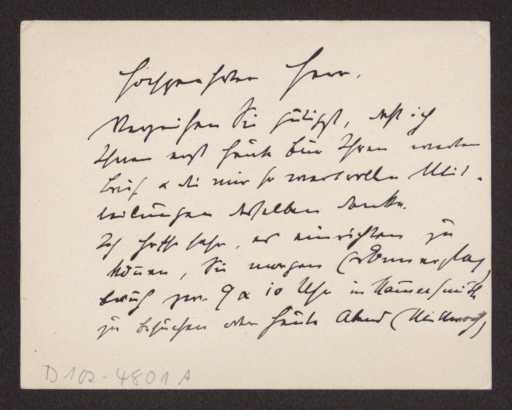 Hochgeehrter Herr.
Verzeihen Sie gütigst, daß ich
Ihnen erst heute für Ihren werten
Brief & die mir so wertvollen Mit-
teilungen desselben danke.
Ich hoffe sehr, es einrichten zu
können, Sie morgen (Donnerstag)
früh zw. 9 & 10 Uhr in
zu besuchen oder heute Abend (Mittwoch)
D 102-4801 A